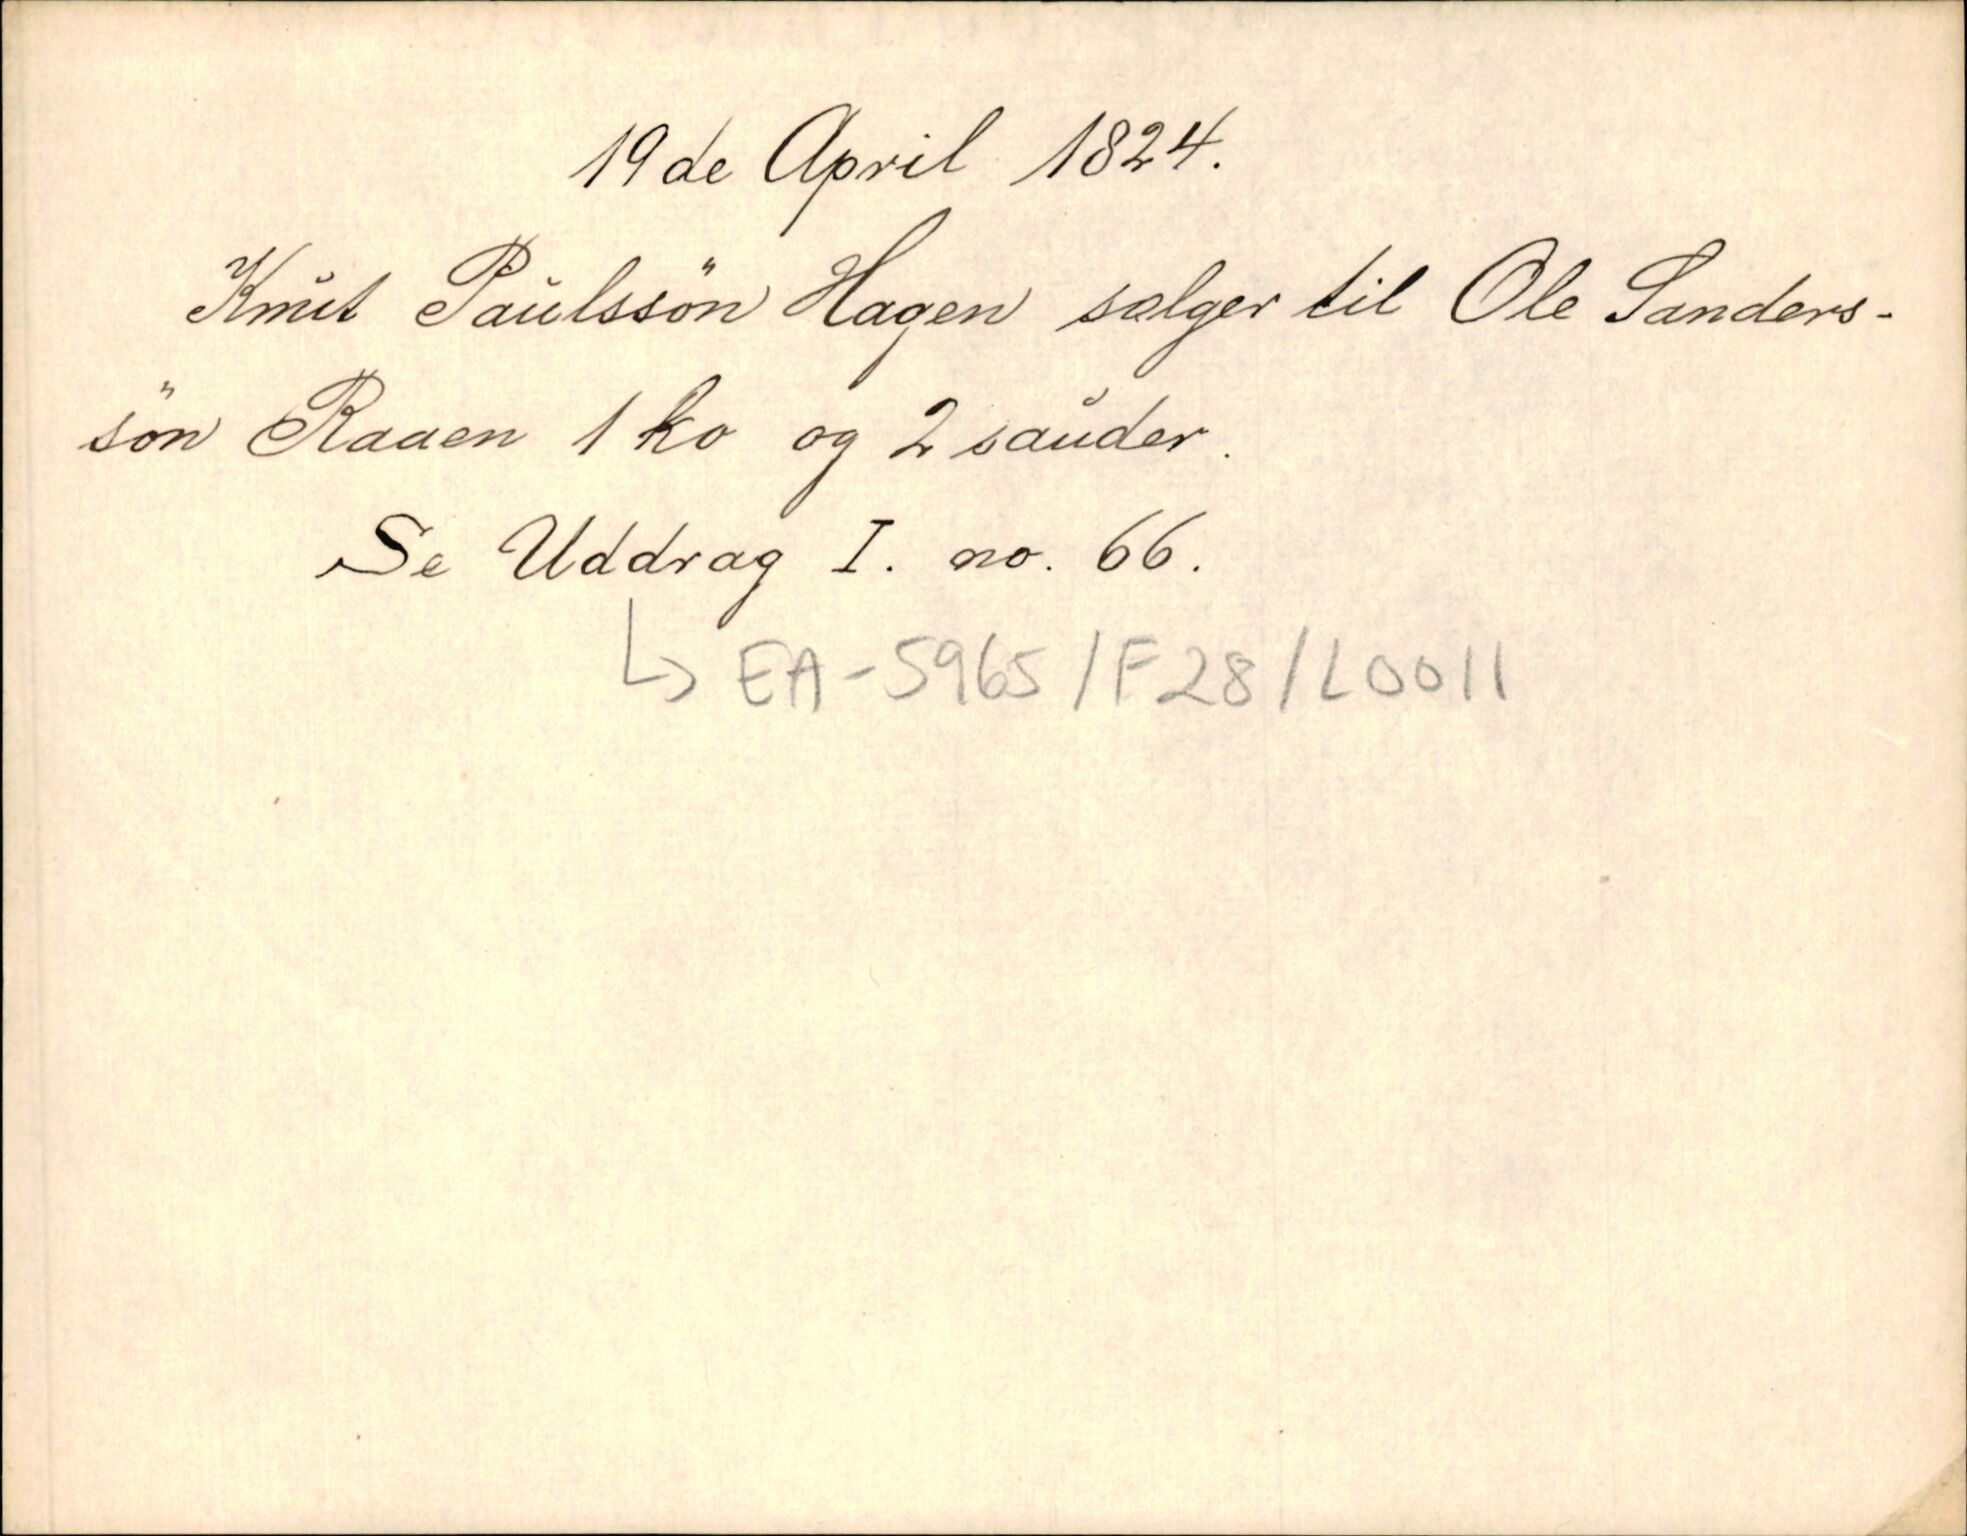 19de April 1824.
Knut Paulssön Hagen sælger til Ole Sanders-
sön Raaen 1 ko og 2 sauder.
Se Uddrag I. no. 66.
↳ EA-5965/F28/L0011